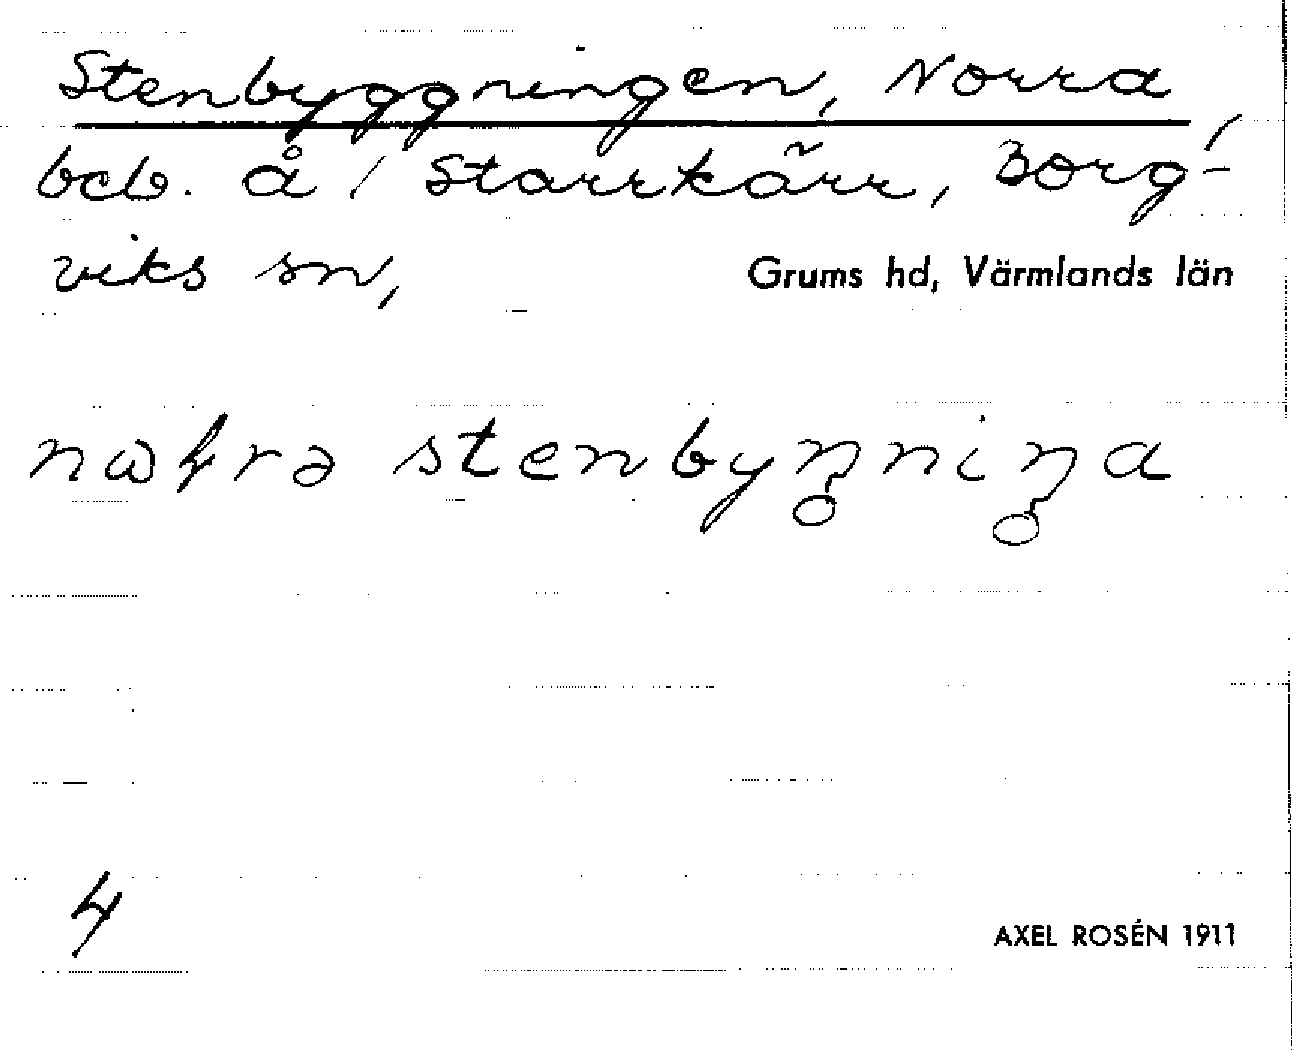 Stenbyggningen, Norra,
beb. å / Starrkärr, Borg-
viks sn, Grums hd, Värmlands län
stenbyŋniŋa
4
AXEL ROSÉN 1911